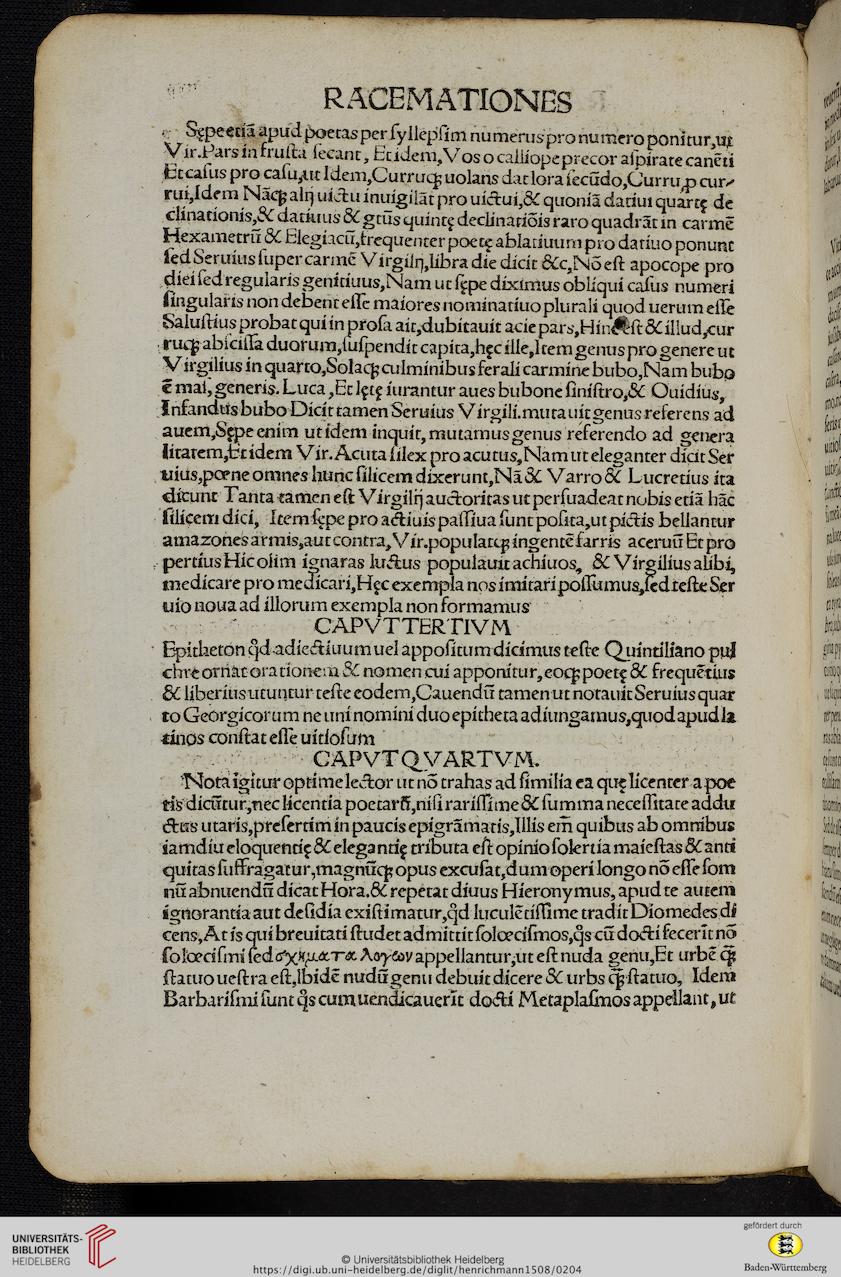 RACEMATIONES
Sępe etiã apud poetas per syllepsim numerus pro numero ponitur,ut
Vir.Pars in frusta secant, Et idem,Vos o calliope precor aspirate canẽti
Et casus pro casu,ut Idem,Curruqꝫ uolans dat lora secũdo,Curru,ꝓ cur-
rui,Idem Nãqꝫ alij uictu inuigilãt pro uictui,& quoniã datiui quartę de
clinationis,& datiuus & gtũs quintę declinatiõis raro quadrãt in carmẽ
Hexametrũ & Elegiacũ,frequenter poetę ablatiuum pro datiuo ponunt
sed Seruius super carmẽ Virgilij,libra die dicit &c,Nõ est apocope pro
diei sed regularis genitiuus,Nam ut sępe diximus obliqui casus numeri
singularis non debent esse maiores nominatiuo plurali quod uerum esse
Salustius probat qui in prosa ait,dubitauit acie pars,Hinc est & illud,cur
ruqꝫ abscissa duorum,suspendit capita,hęc ille,Item genus pro genere ut
Virgilius in quarto,Solaqꝫ culminibus ferali carmine bubo,Nam bubo
ẽ mas, generis. Luca ,Et lętę iurantur aues bubone sinistro,& Ouidius,
Infandus bubo Dicit tamen Seruius Virgili.mutauit genus referens ad
auem,Sępe enim ut idem inquit, mutamus genus referendo ad genera
litatem,Et idem Vir. Acuta silex pro acutus,Nam ut eleganter dicit Ser
uius,pœne omnes hunc silicem dixerunt,Nã & Varro & Lucretius ita
dicunt Tanta tamen est Virgilij auctoritas ut persuadeat nobis etiã hãc
silicem dici, Item sępe pro actiuis passiua sunt posita,ut pictis bellantur
amazones armis,aut contra,Vir.populatqꝫ ingentẽ farris aceruũ Et pro
pertius Hic olim ignaras luctus populauit achiuos, & Virgilius alibi,
medicare pro medicari,Hęc exempla nos imitari possumus,sed teste Ser
uio noua ad illorum exempla non formamus
CAPVT TERTIVM
Epitheton qd adiectiuum uel appositum dicimus teste Quintiliano pul
chre ornat orationem & nomen cui apponitur, eoqꝫ poetę & frequẽtius
& liberius utuntur teste eodem,Cauendũ tamen ut notauit Seruius quar
to Georgicorum ne uni nomini duo epitheta adiungamus,quod apud la
tinos constat esse uitiosum
CAPVT QVARTVM.
Nota igitur optime lector ut nõ trahas ad similia ea quę licenter a poe
tis dicũtur,nec licentia poetarũ,nisi rarissime & summa necessitate addu
ctus utaris,presertim in paucis epigrãmatis,Illis em̃ quibus ab omnibus
iamdiu eloquentię & elegantię tributa est opinio solertia maiestas & anti
quitas suffragatur,magnũqꝫ opus excusat,dum operi longo nõ esse som
nũ abnuendũ dicat Hora.& repetat diuus Hieronymus, apud te autem
ignorantia aut desidia existimatur,qd luculẽtissime tradit Diomedes di
cens,At is qui breuitati studet admittit solœcismos,qs cũ docti fecerĩt nõ
solœcismi sed σχηματα λογων appellantur,ut est nuda genu,Et urbẽ ꝙ̃
statuo uestra est,Ibidẽ nudũ genu debuit dicere & urbs ꝙ̃ statuo, Idem
Barbarismi sunt qs cum uendicauerĩt docti Metaplasmos appellant, ut
UNIVERSITÄTS-
BIBLIOTHEK
HEIDELBERG
© Universitätsbibliothek Heidelberg
https://digi.ub.uni-heidelberg.de/diglit/henrichmann1508/0204
gefördert durch
Baden-Württemberg